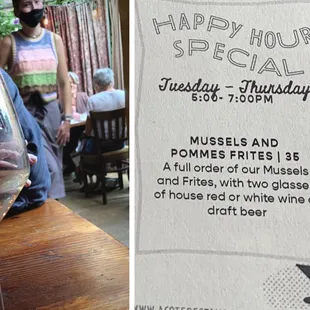 HAPPY HOUR
SPECIAL
Tuesday – Thursday
5:00- 7:00PM
MUSSELS AND
POMMES FRITES | 35
A full order of our Mussels
and Frites, with two glasse
of house red or white wine o
draft beer